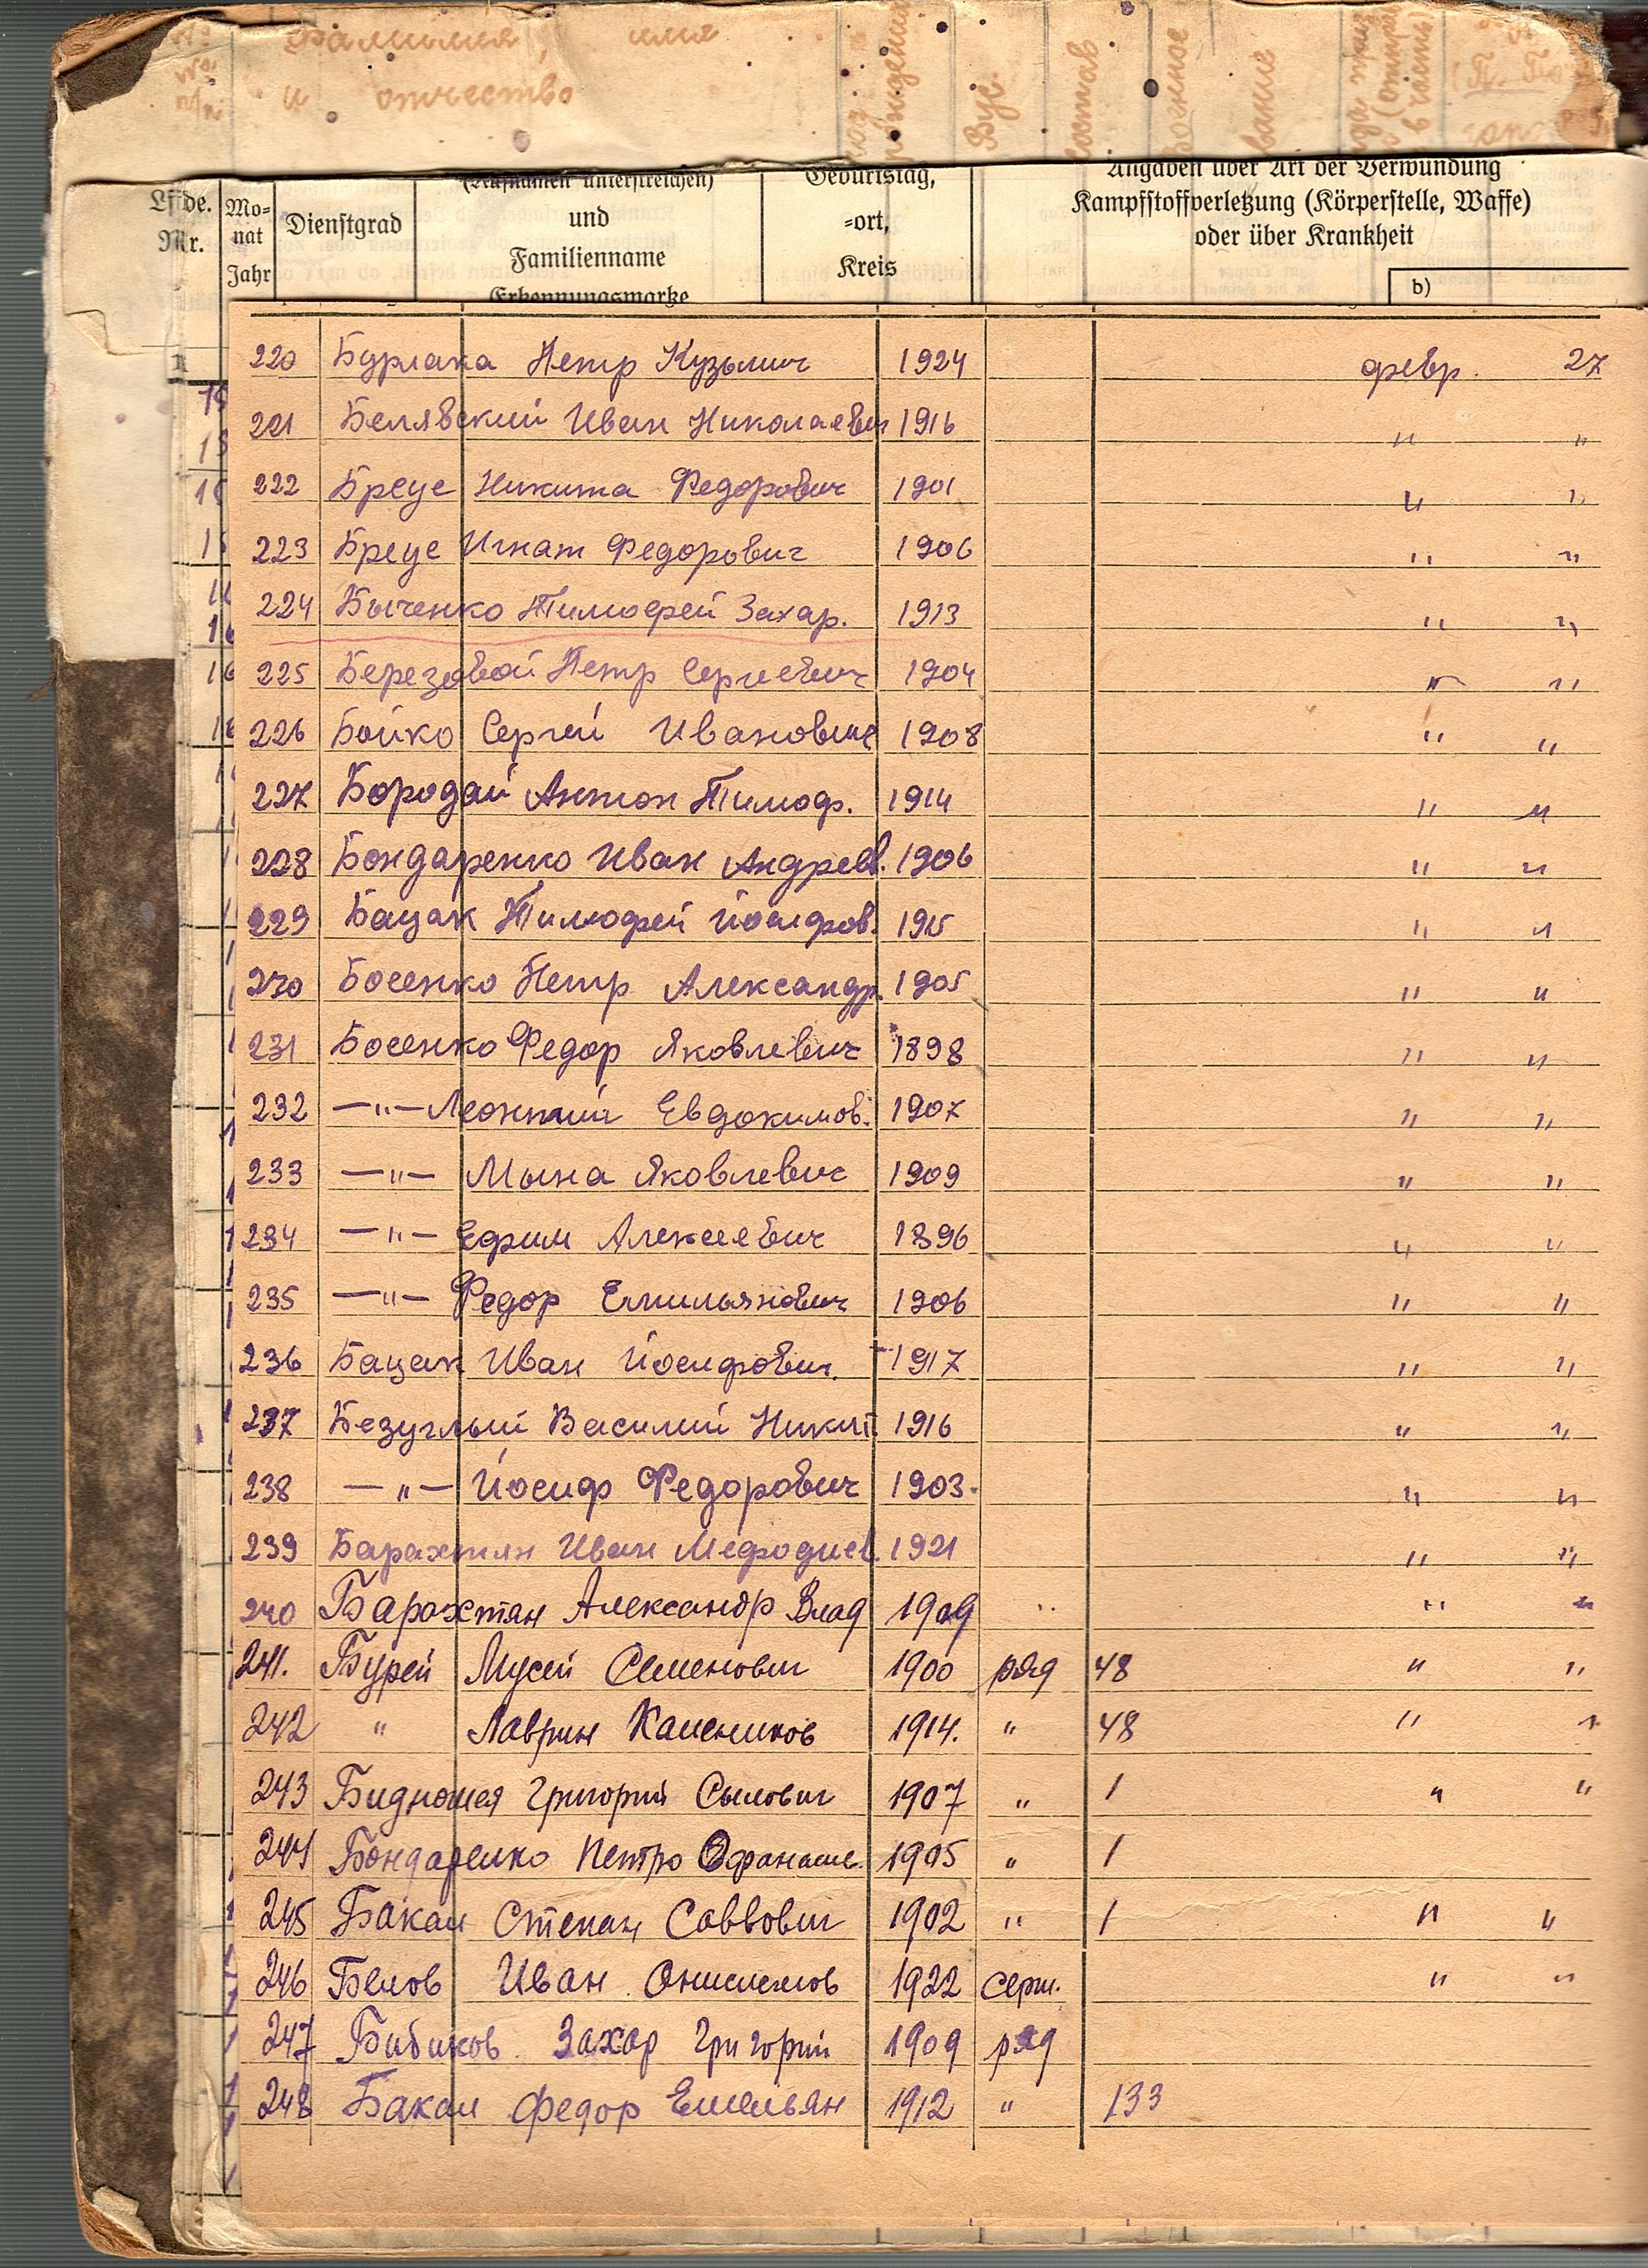 фамилия, имя
и отчество
№№ п/п
год рождения
Вус
состав
Военное
звание
Lfde. Nr.
Mo-
nat
Jahr
Dienstgrad
(Rufnamen unterstreichen)
und
Familienname
Erkennungsmarke
Geburtstag,
=ort,
Kreis
Angaben über Art der Verwundung
Kampfstoffverletzung (Körperstelle, Waffe)
oder über Krankheit
b)
220 Бурлака Петр Кузьмич 1924 февр. 27
221 Белявский Иван Николаевич 1916 " "
222 Бреус Никита Федорович 1901 " "
223 Бреус Игнат Федорович 1906 " "
224 Быченко Тимофей Захар. 1913 " "
225 Березовой Петр Сергиевич 1904 " "
226 Бойко Сергей Иванович 1908 " "
227 Бородай Антон Тимоф. 1914 " "
228 Бондаренко Иван Андреев. 1906 " "
229 Бацак Тимофей Йосифов. 1915 " "
230 Босенко Петр Александр. 1905 " "
231 Босенко Федор Яковлевич 1898 " "
232 —"— Леонтий Евдокимов. 1907 " "
233 —"— Мына Яковлевич 1909 " "
234 —"— Ефим Алексеевич 1896 " "
235 —"— Федор Емильянович 1906 " "
236 Бацак Иван Йосифович. 1917 " "
237 Безуглый Василий Никит. 1916 " "
238 —"— Йосиф Федорович 1903. " "
239 Барахтян Иван Мефодиев. 1921 " "
240 Барахтян Александр Влад 1909 " " "
241. Бурей Мусей Семенович 1900 ряд 48 " "
242 " Лаврин 1914. " 48 " "
243 Григорий Сылович 1907 " 1 " "
244 Бондаренко Петро Офанасие. 1905 " 1
245 Бакал Степан Саввович 1902 " 1 " "
246 Белов Иван 1922 серж. " "
247 Бибиков. Захар Григорий 1909 ряд
248 Бакал Федор Емельян 1912 " 133